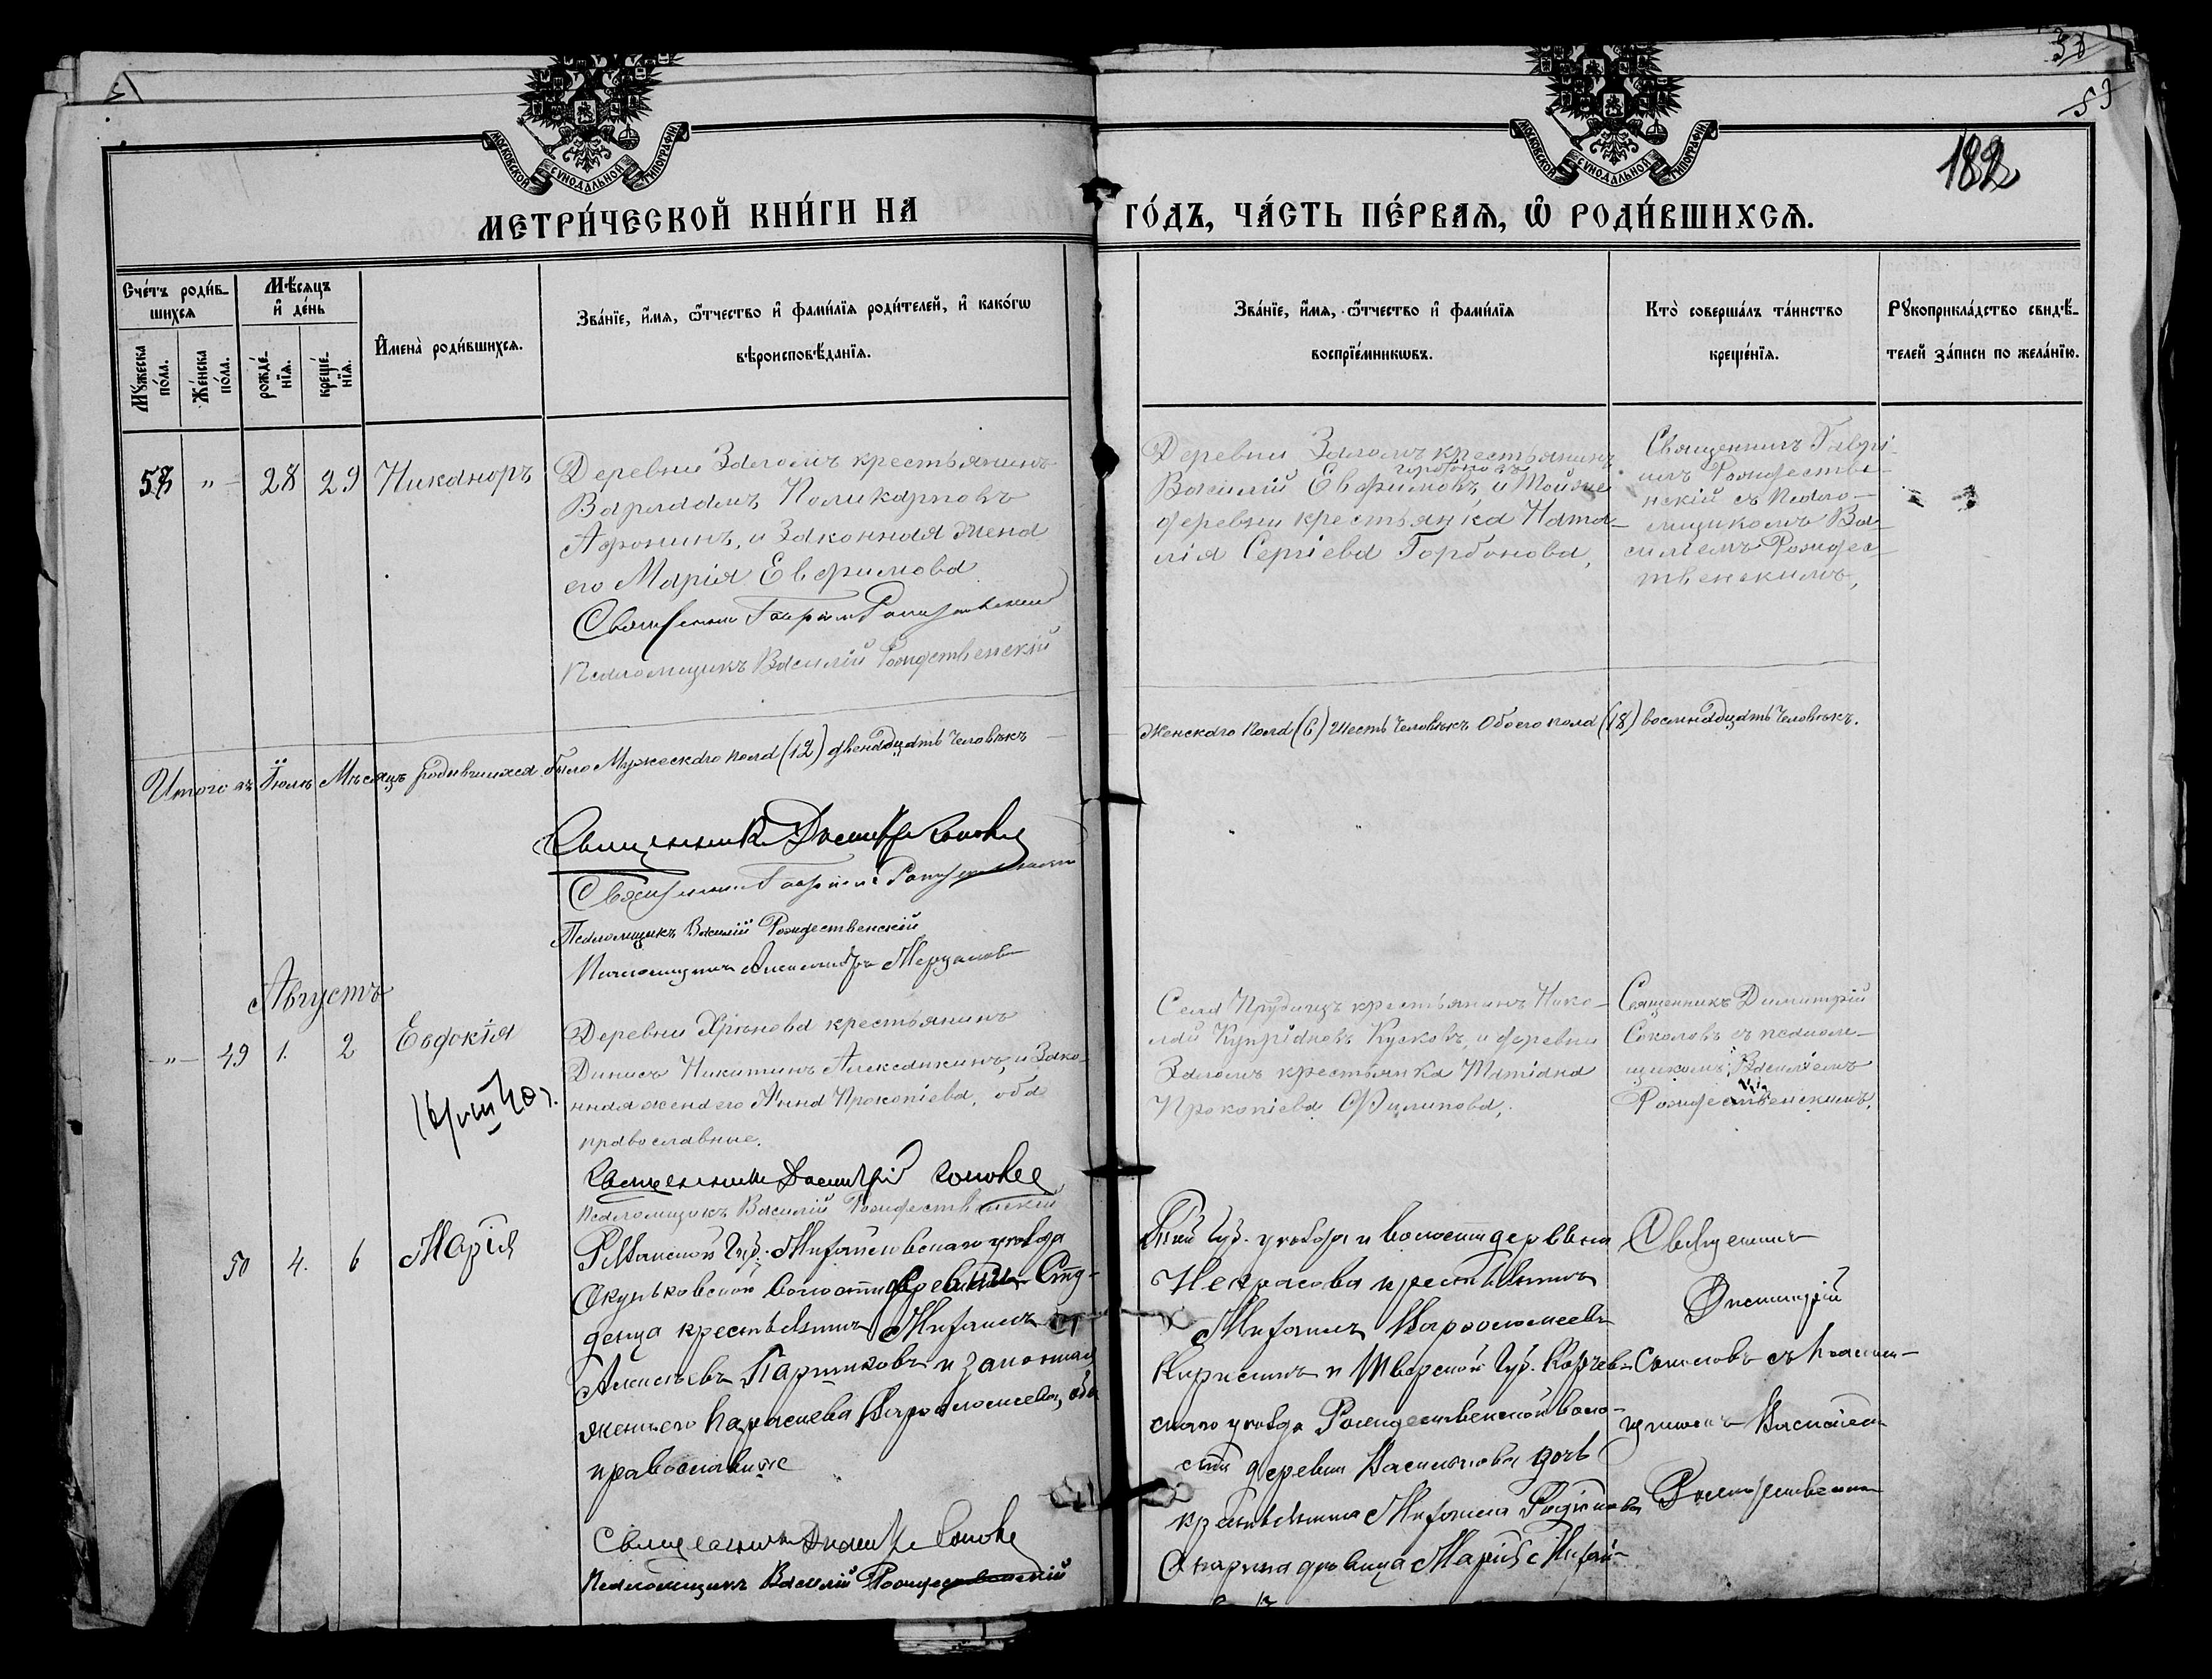 182
МОСКОВСКОЙ СѴНОДАЛЬНОЙ ТИПОГРАФІИ
МОСКОВСКОЙ СѴНОДАЛЬНОЙ ТИПОГРАФІИ
МЕТРИ́ЧЕСКОЙ КНИ́ГИ НА
ГО́ДЪ, ЧА́СТЬ ПЕ́РВАѦ, Ѡ҆ РОДИ́ВШИХСѦ.
Сче́тъ роди́в-
шихсѧ
Мѣ́сѧцъ
и҆ де́нь
Мꙋ́жеска
по́ла.
Же́нска
по́ла.
рожде́-
нїѧ.
креще́-
нїѧ.
И҆мена̀ роди́вшихсѧ.
Зва́нїе, и҆́мѧ, ѻ҆́тчество и҆ фами́лїѧ роди́телей, и҆ како́гѡ
вѣроисповѣ́данїѧ.
Зва́нїе, и҆́мѧ, ѻ҆́тчество и҆ фами́лїѧ
воспрїе́мникѡвъ.
Кто̀ соверша́лъ та́инство
креще́нїѧ.
Рꙋкоприкла́дство свидѣ́-
телей за́писи по жела́нїю.
58 " 28 29 Никаноръ
Деревни Заломъ крестьянинъ
Варлаамъ Поликарповъ
Афонинъ, и законная жена
его Марія Евфимова
Священникъ Гавріилъ Рождественскій
Псаломщикъ Василій Рождественскій
Деревни Заломъ крестьянинъ
Василій Евфимовъ, и тойже
деревни крестьянка Ната-
лія Сергіева Горбонова,
Священникъ Гаврі-
илъ Рождестве-
нскій съ псало-
мщикомъ Ва-
силіемъ Рождес-
твенскимъ,
Итого въ Іюлѣ Мѣсяцѣ родившихся было Мужескаго пола (12) двенадцать человѣкъ
Женскаго пола (6) шесть человѣкъ Обоего пола (18) восмнадцать человѣкъ.
Священникъ Димитрій Соколовъ
Священникъ Гавріилъ Рождественскій
Псаломщикъ Василій Рождественскій
Псаломщикъ Александръ
Августъ
" 49 1. 2 Евдокія
Деревни Хрѣнова крестьянинъ
Динисъ Никитинъ Алексашкинъ, и зако-
нная жена его Анна Прокопіева, оба
православные.
Священникъ Димитрій Соколовъ
Псаломщикъ Василій Рождественскій
Села Прудищъ крестьянинъ Нико-
лай Купріановъ Кусковъ, и деревни
Заломъ крестьянка Татіана
Прокопіева Филипова,.
Священникъ Димитрій
Соколовъ съ псалом-
щикомъ Василіемъ
Рождественскимъ,
50 4. 6 Марія
Рязанской Губ. Михайловскаго уѣзда
волости деревни Сту-
денца крестьянинъ Михаилъ
Алексѣевъ Паршиковъ и законная
жена его Параскева Варѳоломеева, оба
православные
Священникъ Димитрій Соколовъ
Псаломщикъ Василій Рождественскій
Губ. уѣзда и волости деревни
Некрасова крестьянинъ
Михаилъ Варѳоломеевъ
и Тверской Губ. Корчев-
скаго уѣзда Рождественской воло-
сти деревни Василькова дочь
крестьянина Михаила
дѣвица Марія Михай-
Священникъ
Димитрій
Соколовъ съ псалом-
щикомъ Василіемъ
Рождественскимъ